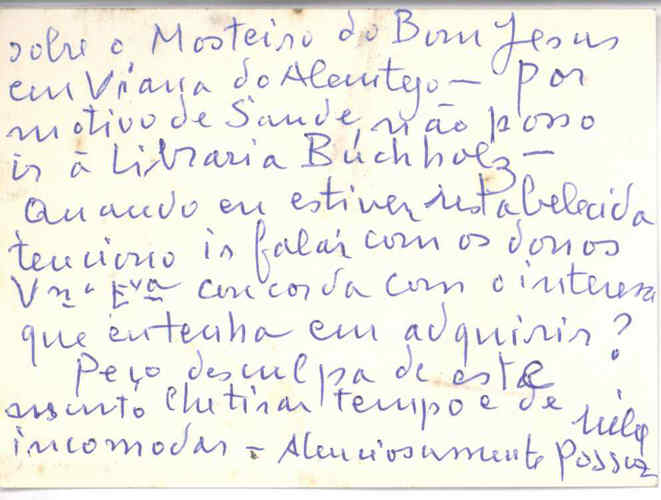 sobre o Mosteiro do Bom Jesus
em Viana do Alentejo — Por
motivo de Saude, não posso
ir à Libraria Buchholz —
Quando eu estiver restabelecida
tenciono ir falar com os donos
Vª Exª concorda com o interesse
que eu tenha em adquirir?
Peço desculpa de este
assunto lhe tirar tempo e de
incomodar = Atenciosamente